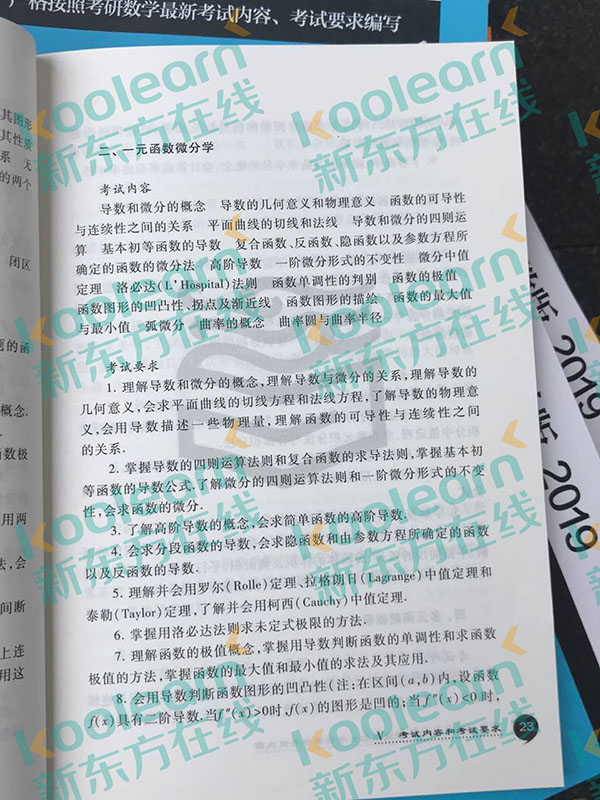 严格按照考研数学最新考试内容、考试要求编写
其图形
其性质
系 无
的两个
闭区
题的函
概念.
函数极
用两
法,会
间断
上连
用这
二、一元函数微分学
考试内容
导数和微分的概念 导数的几何意义和物理意义 函数的可导性
与连续性之间的关系 平面曲线的切线和法线 导数和微分的四则运
算 基本初等函数的导数 复合函数、反函数、隐函数以及参数方程所
确定的函数的微分法 高阶导数 一阶微分形式的不变性 微分中值
定理 洛必达(L'Hospital)法则 函数单调性的判别 函数的极值
函数图形的凹凸性、拐点及渐近线 函数图形的描绘 函数的最大值
与最小值 弧微分 曲率的概念 曲率圆与曲率半径
考试要求
1. 理解导数和微分的概念,理解导数与微分的关系,理解导数的
几何意义,会求平面曲线的切线方程和法线方程,了解导数的物理意
义,会用导数描述一些物理量,理解函数的可导性与连续性之间
的关系.
2. 掌握导数的四则运算法则和复合函数的求导法则,掌握基本初
等函数的导数公式.了解微分的四则运算法则和一阶微分形式的不变
性,会求函数的微分.
3. 了解高阶导数的概念,会求简单函数的高阶导数.
4. 会求分段函数的导数,会求隐函数和由参数方程所确定的函数
以及反函数的导数.
5. 理解并会用罗尔(Rolle)定理、拉格朗日(Lagrange)中值定理和
泰勒(Taylor)定理,了解并会用柯西(Cauchy)中值定理.
6. 掌握用洛必达法则求未定式极限的方法.
7. 理解函数的极值概念,掌握用导数判断函数的单调性和求函数
极值的方法,掌握函数的最大值和最小值的求法及其应用.
8. 会用导数判断函数图形的凹凸性(注:在区间(a,b)内,设函数
f(x)具有二阶导数.当f″(x)>0时,f(x)的图形是凹的;当f″(x)<0时,
V 考试内容和考试要求 23
版 2019
版 2019
koolearn
新东方在线
koolearn
新东方在线
koolearn
新东方在线
koolearn
新东方在线
koolearn
新东方在线
koolearn
新东方在线
koolearn
新东方在线
koolearn
新东方在线